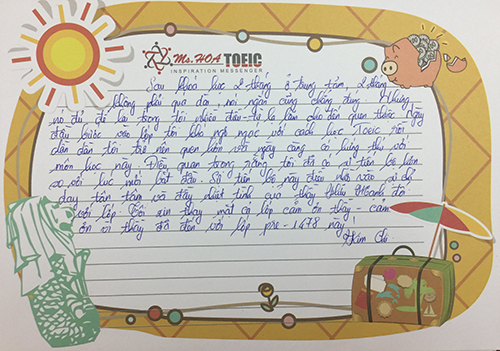 Ms.HOA TOEIC
INSPIRATION MESSENGER
Sau khóa học 2 tháng ở trung tâm, 2 tháng
không phải quá dài, nói ngắn cũng chẳng đúng. Nhưng
nó đủ để lại trong tôi nhiều điều - từ lạ lẫm cho đến quen thuộc. Ngày
đầu bước vào lớp tôi khá ngỡ ngàng với cách học TOEIC, rồi
dần dần tôi trở nên quen hơn và ngày càng có hứng thú với
môn học này. Điều quan trọng rằng tôi đã có sự tiến bộ hơn
so với lúc mới bắt đầu. Sự tiến bộ này điều nhờ vào sự chỉ
dạy tận tâm và đầy nhiệt tình của thầy Hiếu Mạnh đã
với lớp. Tôi xin thay mặt cả lớp cảm ơn thầy - cảm
ơn vì thầy đã đến với lớp pre-1478 này!
Kim Chi